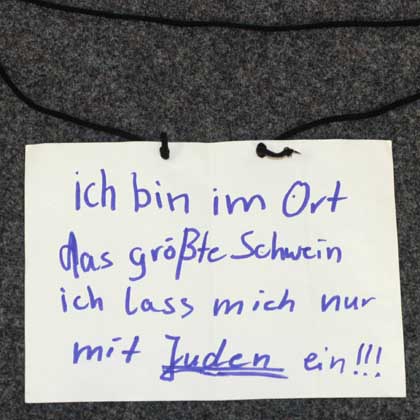 ich bin im Ort
das größte Schwein
ich lass mich nur
mit Juden ein!!!